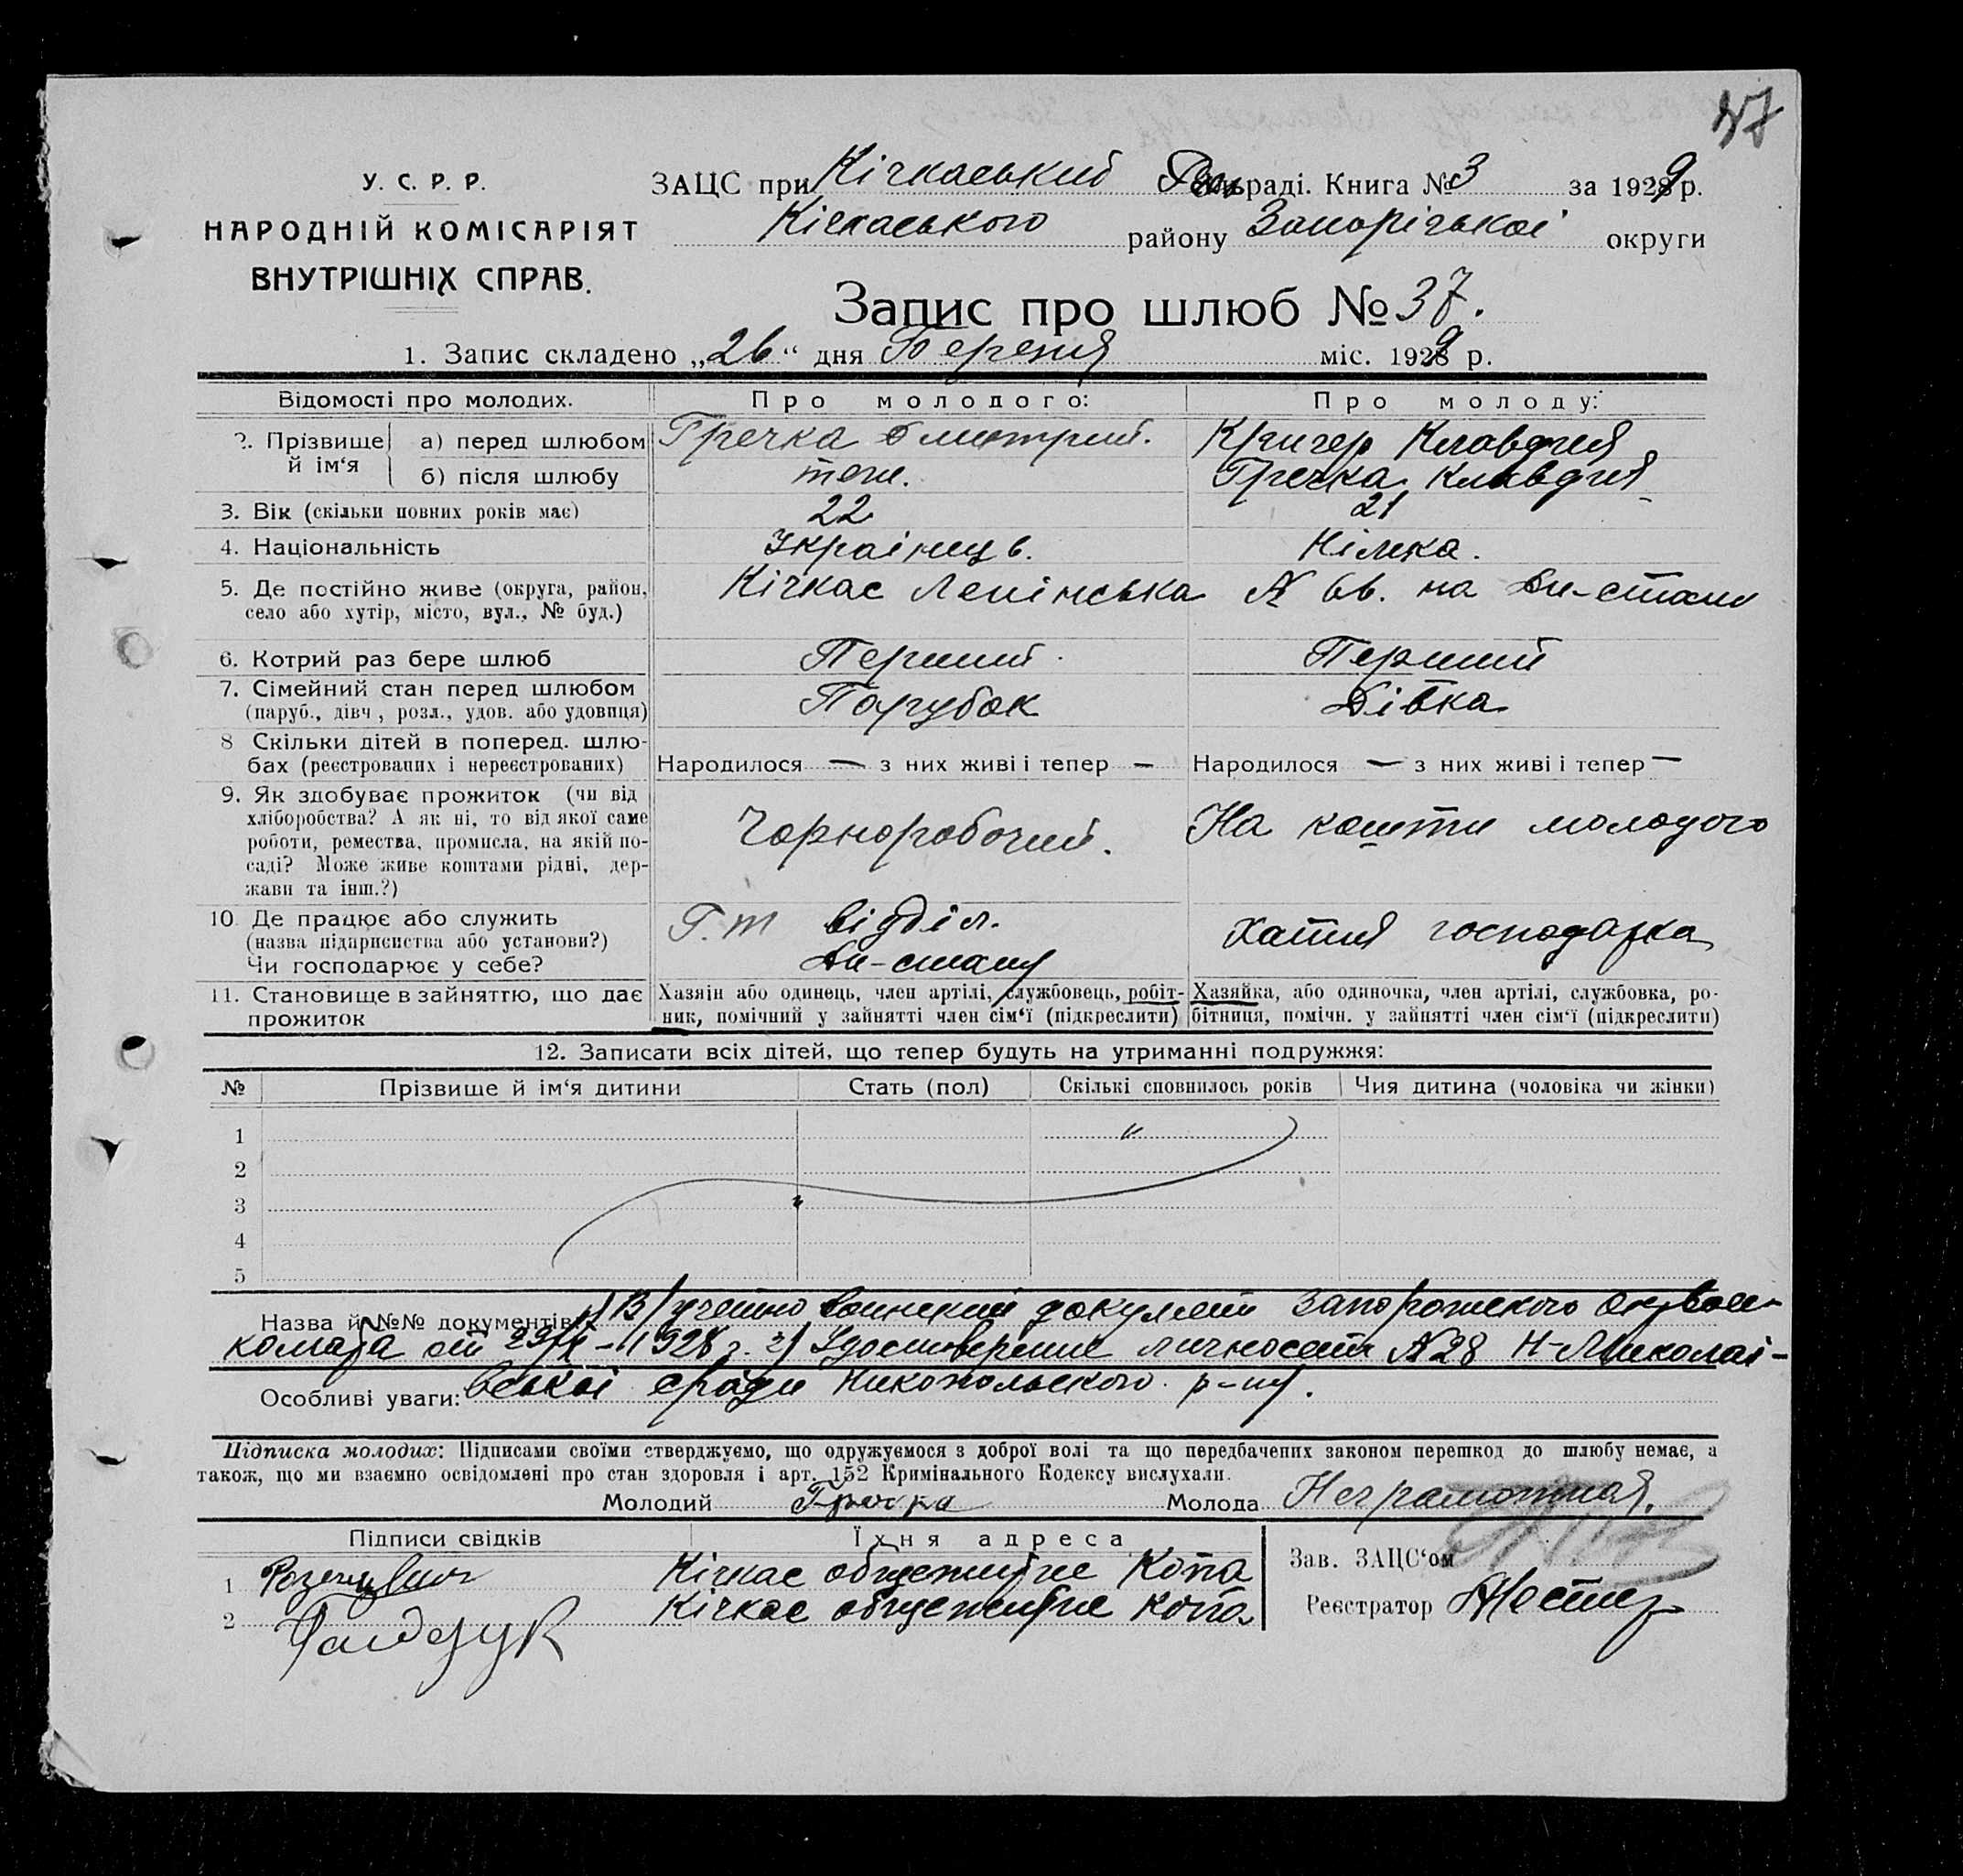 37
У. С. Р. Р.
НАРОДНІЙ КОМІСАРІЯТ
ВНУТРІШНІХ СПРАВ.
ЗАЦС при Кічкаський раді. Книга № 3 за 1929 р.
Кічкаського району Запорізької округи
Запис про шлюб № 37.
1. Запис складено „26“ дня Березня міс. 1929 р.
Відомості про молодих. Про молодого: Про молоду:
2. Прізвище й ім‘я а) перед шлюбом Гречка Дмитрий. Кригер Клавдия
б) після шлюбу теж. Гречка Клавдия
3. Вік (скільки повних років має) 22 21
4. Національність Українець. Німка.
5. Де постійно живе (округа, район, село або хутір, місто, вул., № буд.) Кічкас Ленінська № 66. на Дн-стану
6. Котрий раз бере шлюб Перший. Перший
7. Сімейний стан перед шлюбом (паруб., дівч., розл., удов. або удовиця) Парубок Дівка
8 Скільки дітей в поперед. шлюбах (реєстрованих і нереєстрованих) Народилося — з них живі і тепер — Народилося — з них живі і тепер —
9. Як здобуває прожиток (чи від хліборобства? А як ні, то від якої саме роботи, ремества, промисла, на якій посаді? Може живе коштами рідні, держави та інш.?) Чорноробочий. На кошти молодого
10. Де працює або служить (назва підприєиства або установи?) Чи господарює у себе? Г.т відділ. Дн-стану Хатня господарка
11. Становище в зайняттю, що дає прожиток Хазяін або одинець, член артілі, службовець, робітник, помічний у зайнятті член сім‘ї (підкреслити) Хазяйка, або одиночка, член артілі, службовка, робітниця, помічн. у зайнятті член сім‘ї (підкреслити)
12. Записати всіх дітей, що тепер будуть на утриманні подружжя:
№ Прізвище й ім‘я дитини Стать (пол) Скількі сповнилось років Чия дитина (чоловіка чи жінки)
1 "
2
3
4
5
Назва й №№ документів: учетно воинский документ Запорожского Окрвоен-
комата от 1928 г. 2) Удостоверение личности № 28 Н-Миколаі-
Особливі уваги: вської сради Никопольского р-ну.
Підписка молодих: Підписами своїми стверджуємо, що одружуємося з доброї волі та що передбачених законом перешкод до шлюбу немає, а
також, що ми взаємно освідомлені про стан здоровля і арт. 152 Кримінального Кодексу вислухали.
Молодий Гречка Молода Неграмотная.
Підписи свідків Їхня адреса
1 Кічкас общежитие Копа
2 Гайдук Кічкас общежитие Копа
Зав. ЗАЦС‘ом
Реєстратор